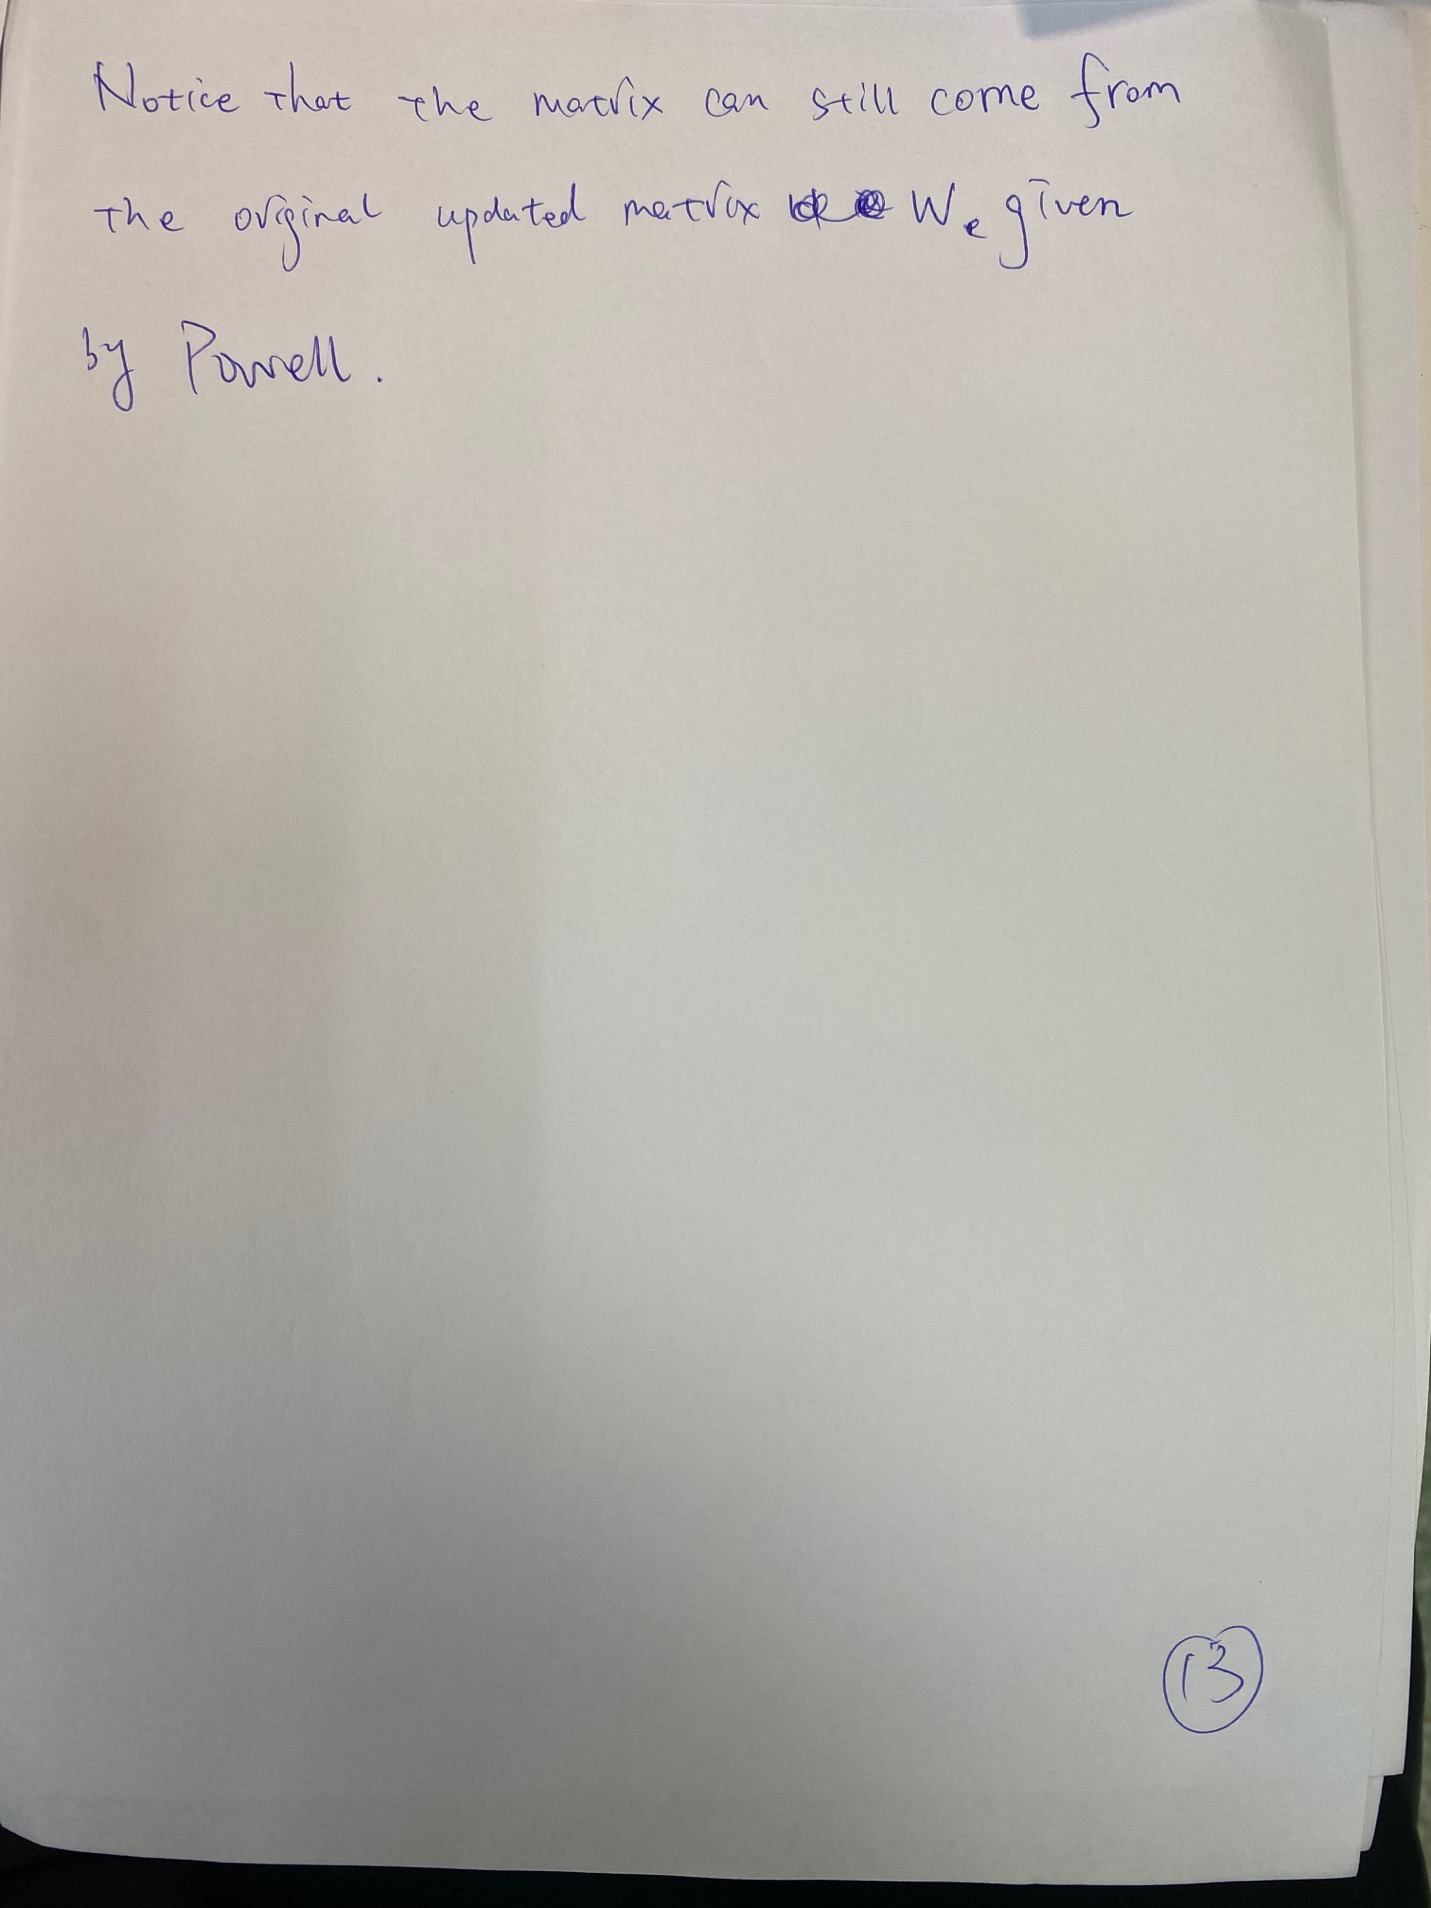 Notice that the matrix can still come from
the original updated matrix We given
by Powell.
13